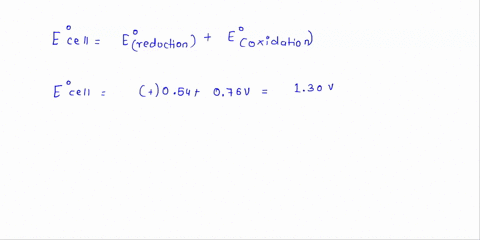 E°cell = E°(reduction) + E°(oxidation)
E°cell = (+)0.54+ 0.76V = 1.30 V